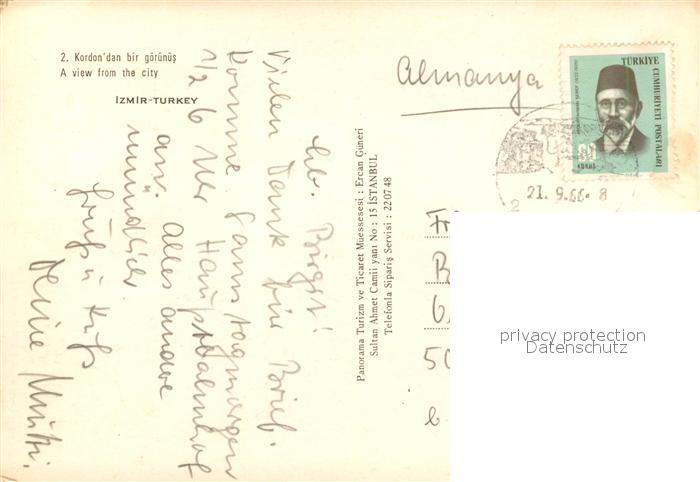 2. Kordon'dan bir görünüş
A view from the city
İZMİR-TURKEY
Almanya
TÜRKİYE CUMHURİYETİ POSTALARI
KURUŞ
21.9.66-8
2
Lb. Birgit!
Vielen Dank für Brief.
Komme Samstagmorgen
1/2 6 Uhr Hauptbahnhof
an. Alles andere
mündlich.
Gruß u. Kuß
Deine Mutti.
Panorama Turizm ve Ticaret Müessesesi : Ercan Güneri
Sultan Ahmet Camii yanı No : 15 İSTANBUL
Telefonla Sipariş Servisi : 22 07 48
50
privacy protection
Datenschutz